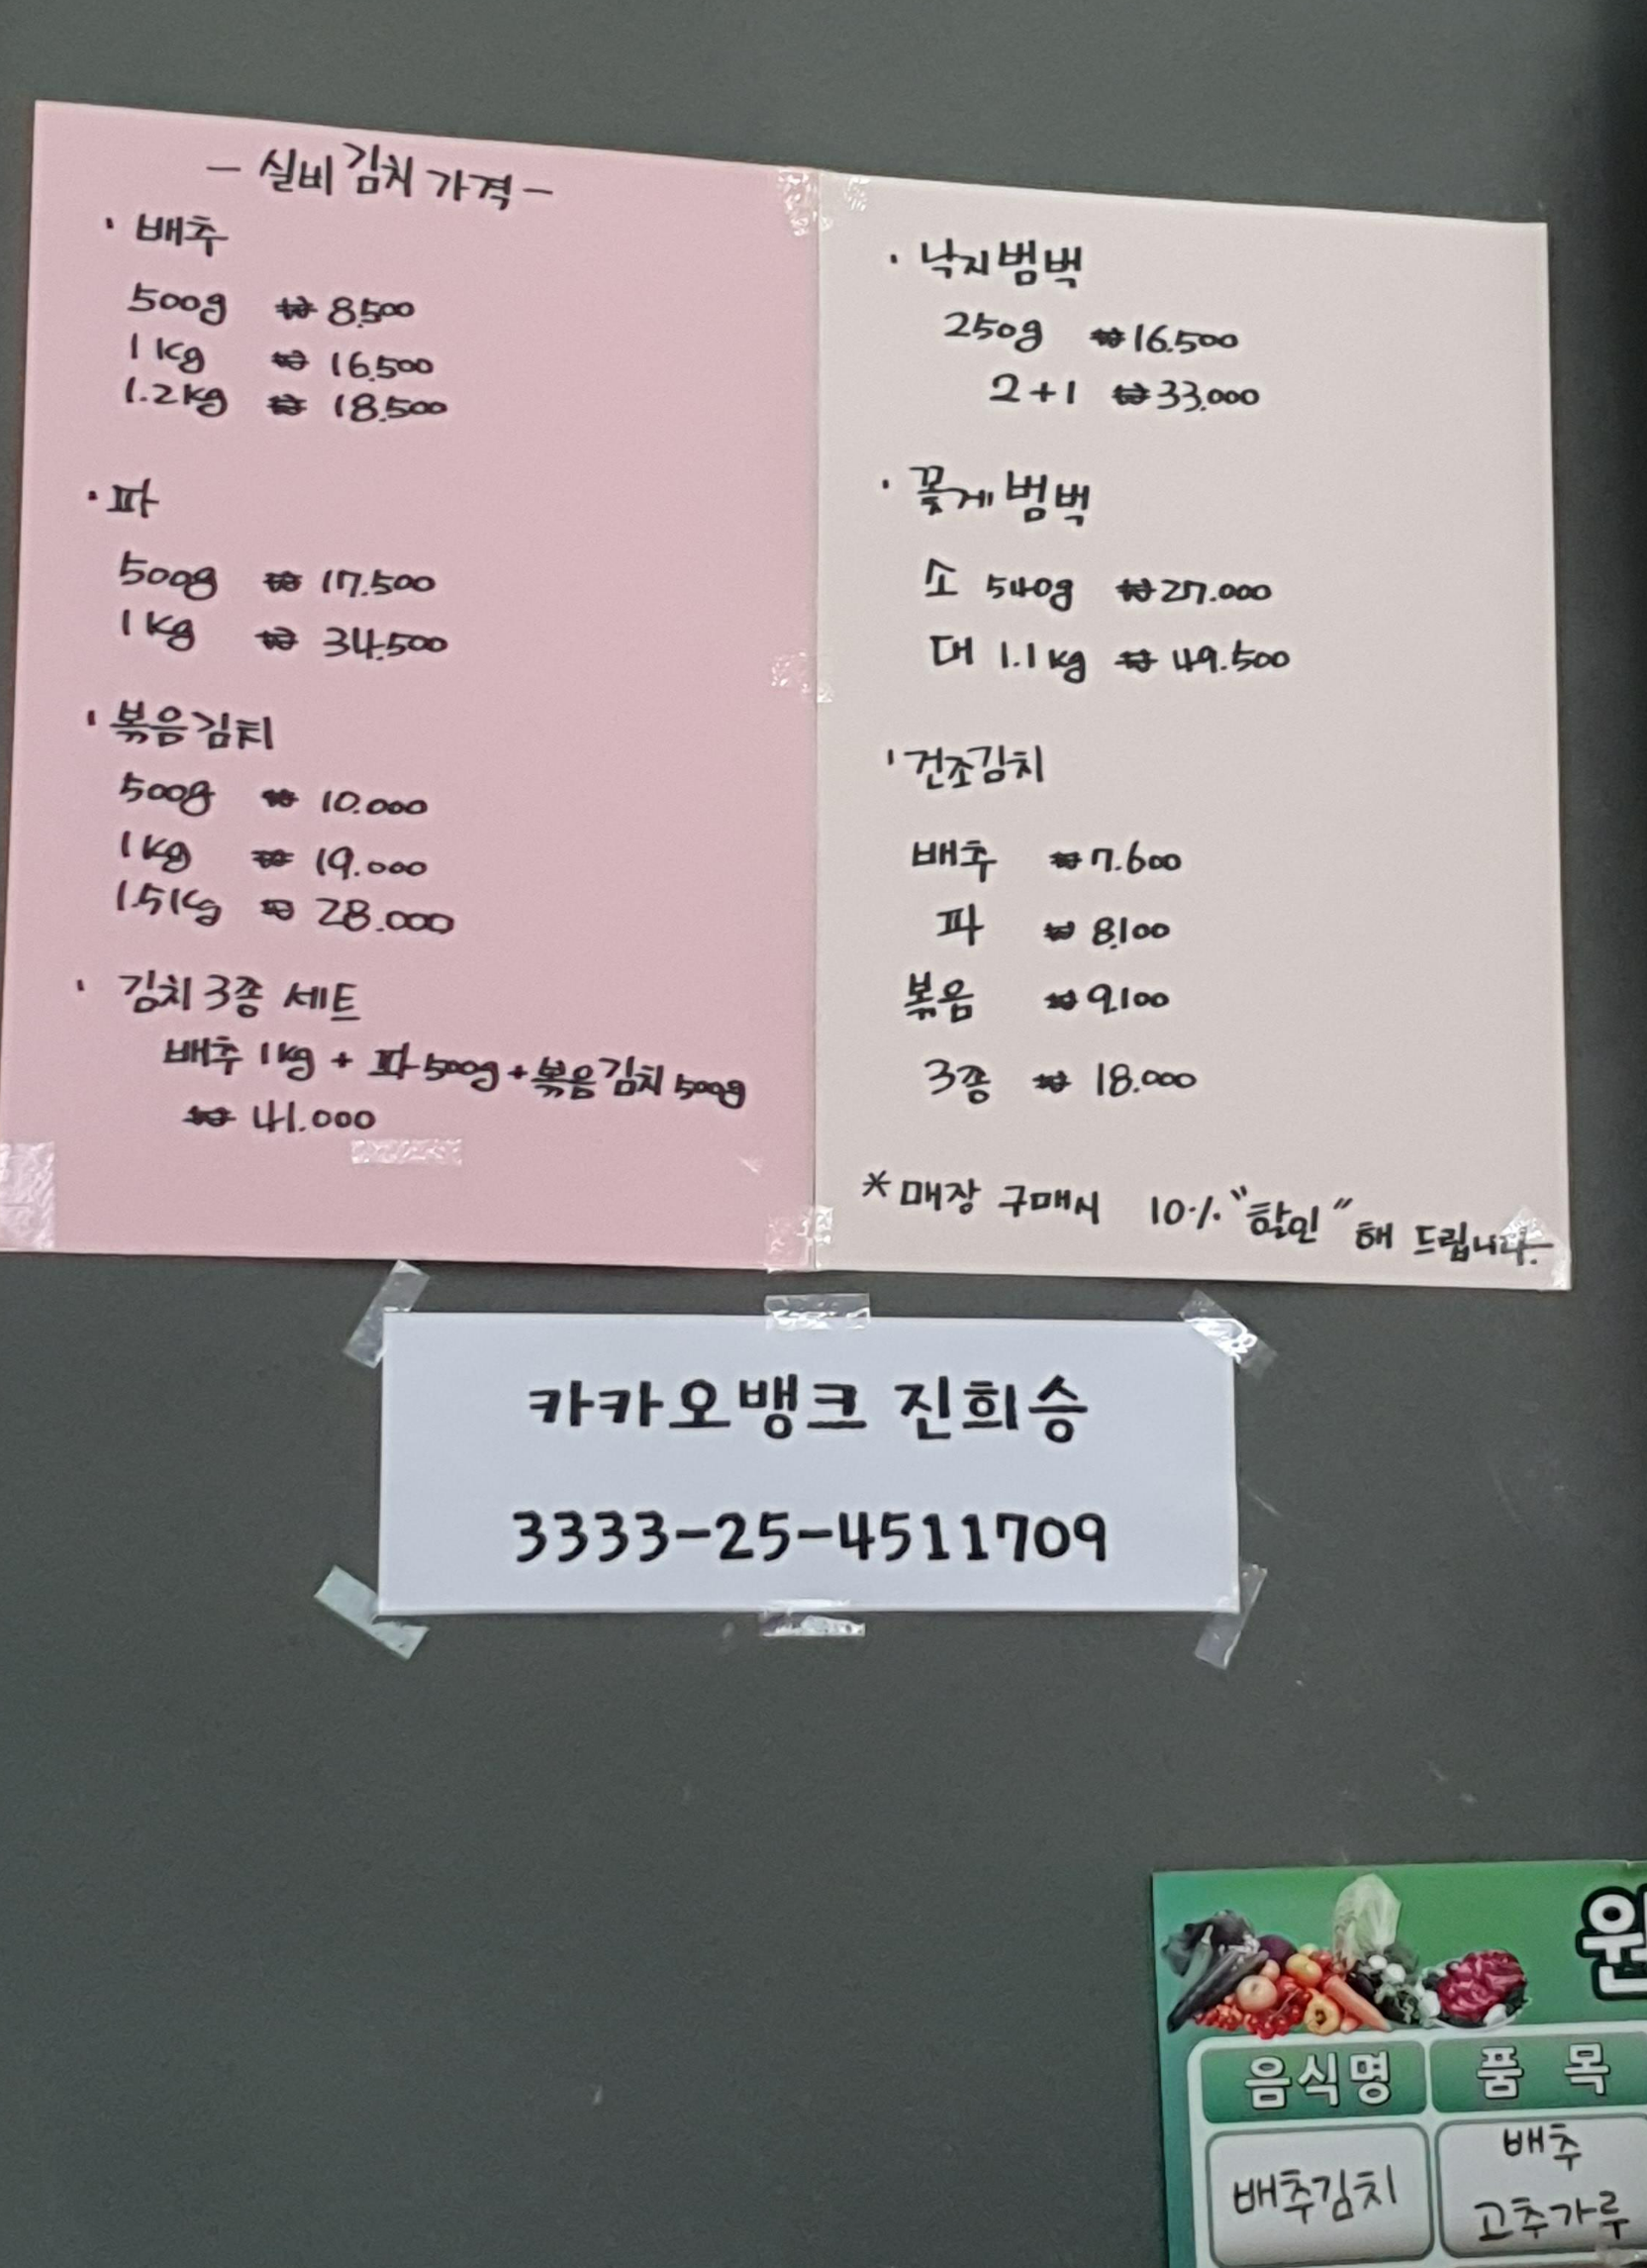 - 실비김치 가격 -
· 배추
500g ₩ 8,500
1kg ₩ 16,500
1.2kg ₩ 18,500
· 파
500g ₩ 17.500
1kg ₩ 34.500
· 볶음김치
500g ₩ 10.000
1kg ₩ 19.000
1.5kg ₩ 28.000
· 김치 3종 세트
배추 1kg + 파 500g + 볶음김치 500g
₩ 41.000
· 낙지범벅
250g ₩16.500
2+1 ₩33.000
· 꽃게범벅
소 540g ₩27.000
대 1.1kg ₩49.500
· 건조김치
배추 ₩7.600
파 ₩8,100
볶음 ₩9,100
3종 ₩ 18.000
* 매장 구매시 10% "할인" 해 드립니다.
카카오뱅크 진희승
3333-25-4511709
음식명 품 목
배추김치 배추
고추가루